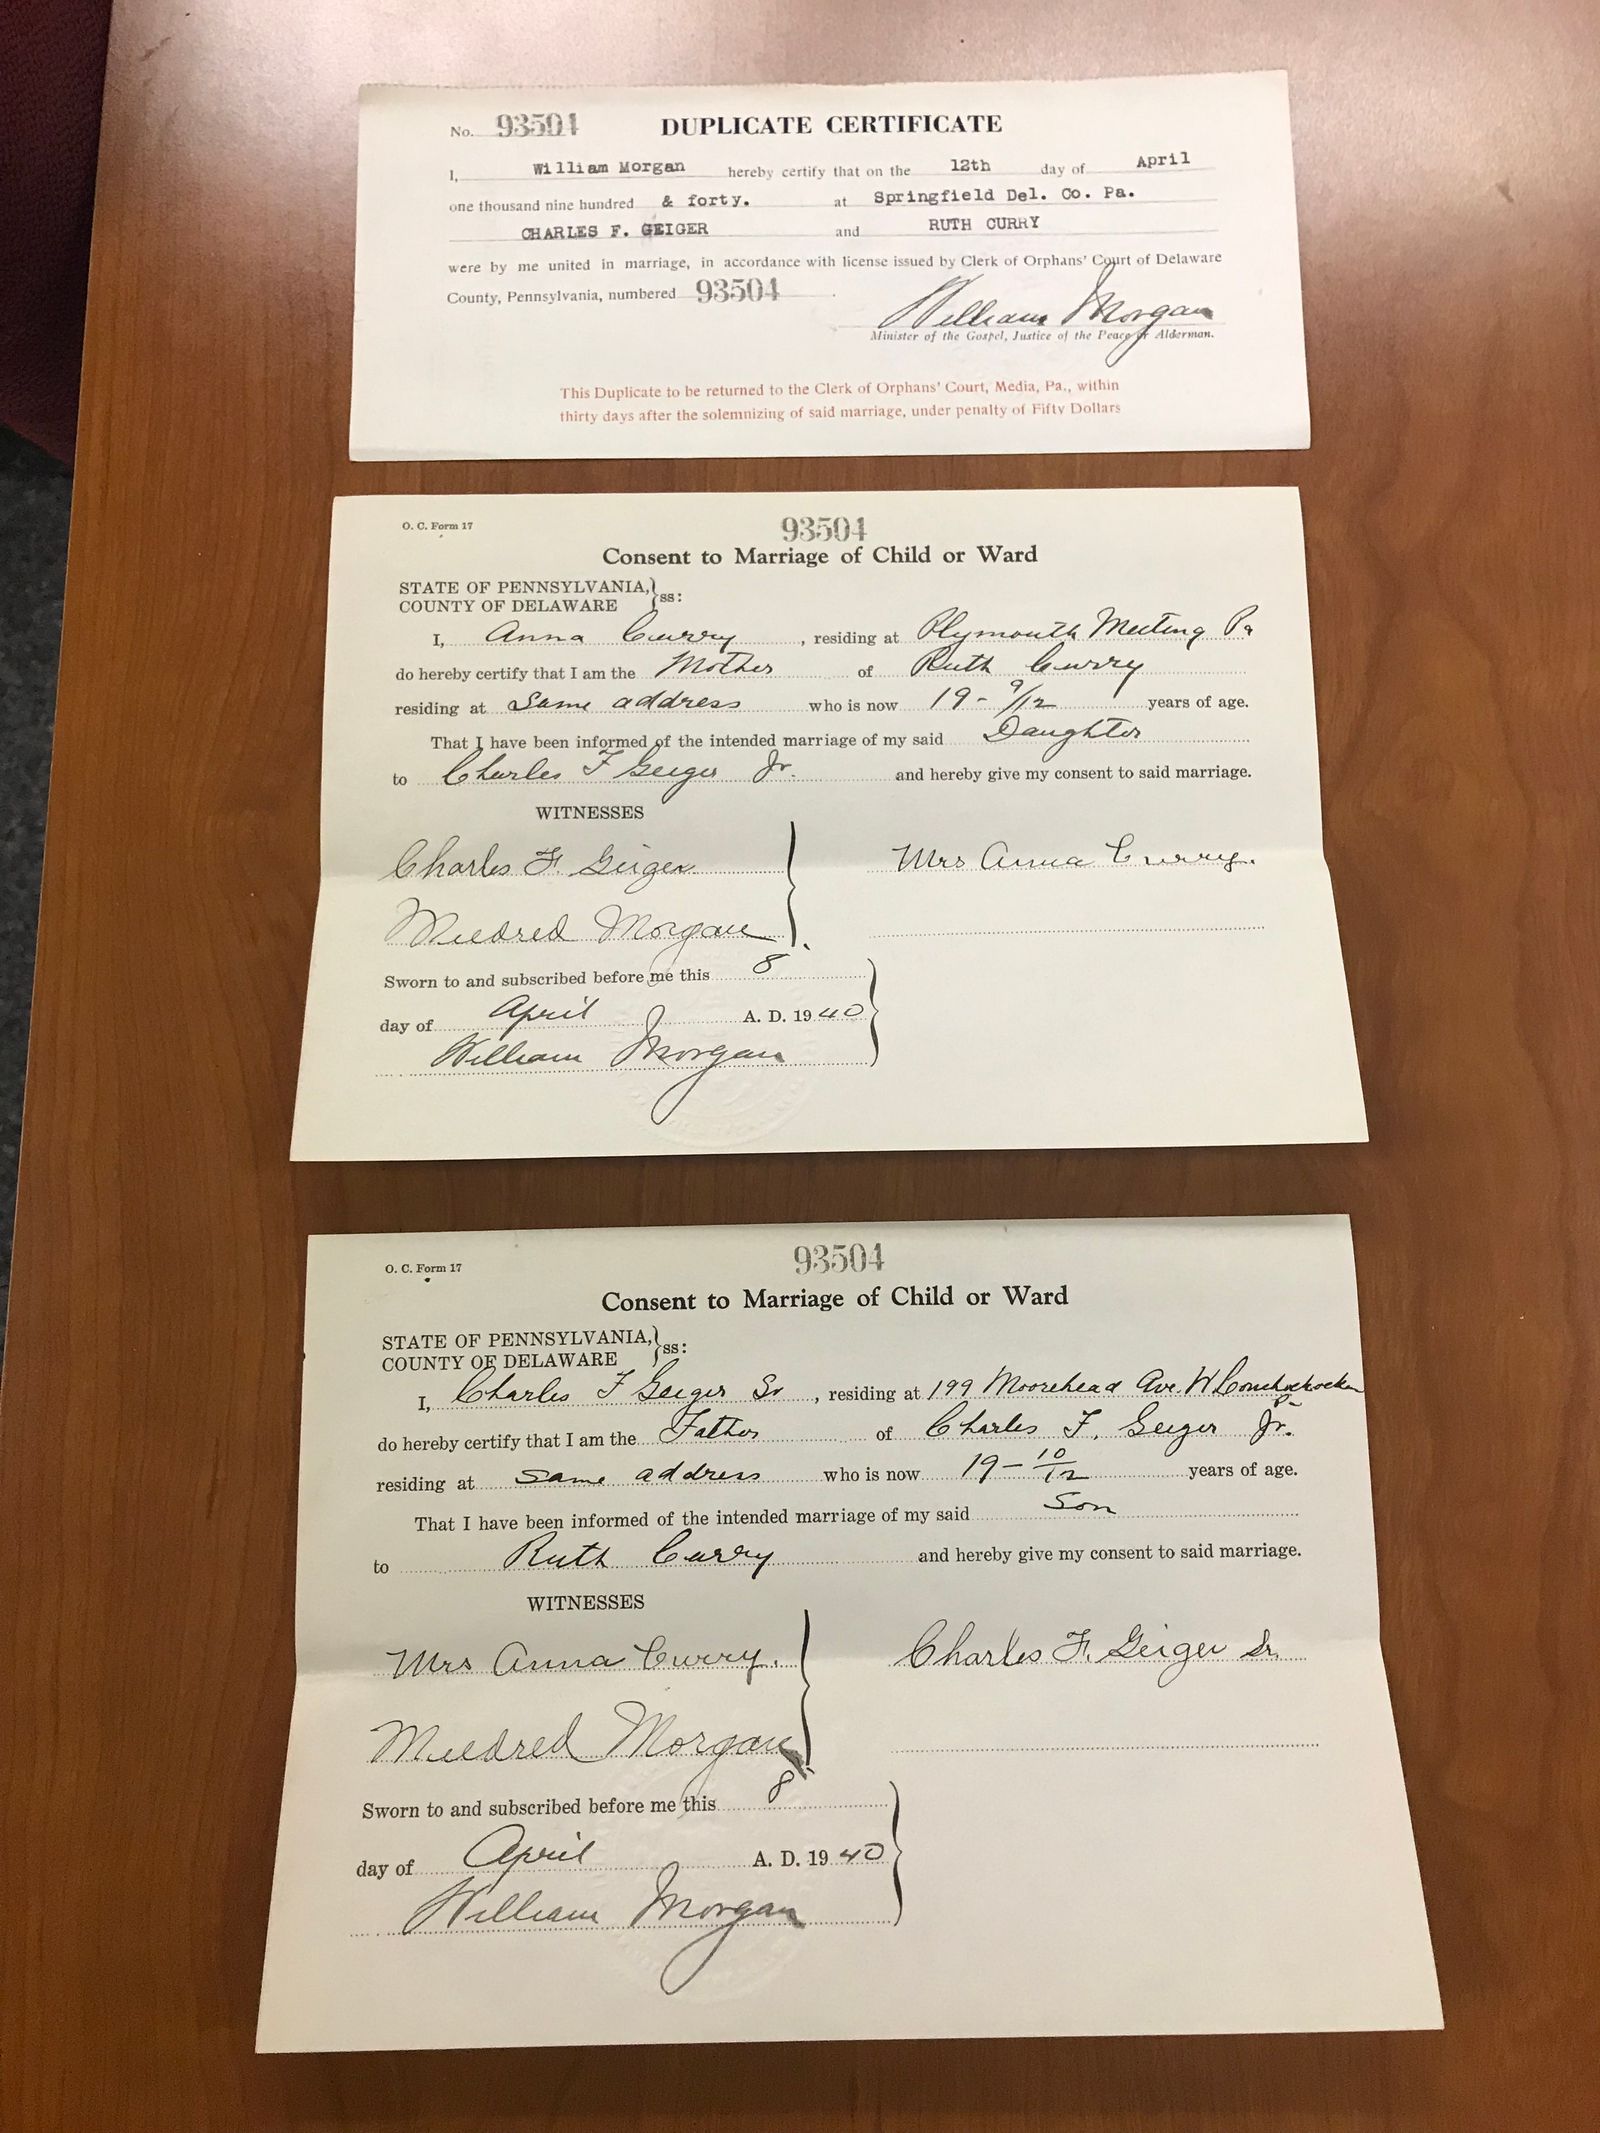 No. 93504 DUPLICATE CERTIFICATE
I, William Morgan hereby certify that on the 12th day of April
one thousand nine hundred & forty. at Springfield Del. Co. Pa.
CHARLES F. GEIGER and RUTH CURRY
were by me united in marriage, in accordance with license issued by Clerk of Orphans' Court of Delaware
County, Pennsylvania, numbered 93504
William Morgan
Minister of the Gospel, Justice of the Peace or Alderman.
This Duplicate to be returned to the Clerk of Orphans' Court, Media, Pa., within
thirty days after the solemnizing of said marriage, under penalty of Fifty Dollars
O. C. Form 17
93504
Consent to Marriage of Child or Ward
STATE OF PENNSYLVANIA,
COUNTY OF DELAWARE } ss:
I, Anna Curry, residing at Plymouth Meeting Pa
do hereby certify that I am the Mother of Ruth Curry
residing at Same address who is now 19-9/12 years of age.
That I have been informed of the intended marriage of my said Daughter
to Charles F Geiger Jr. and hereby give my consent to said marriage.
WITNESSES
Charles F. Geiger Mrs Anna Curry.
Mildred Morgan
Sworn to and subscribed before me this 8
day of April A. D. 1940
William Morgan
O. C. Form 17
93504
Consent to Marriage of Child or Ward
STATE OF PENNSYLVANIA,
COUNTY OF DELAWARE } ss:
I, Charles F Geiger Sr, residing at 199 Moorehead Ave. W Conshohocken
Pa
do hereby certify that I am the Father of Charles F. Geiger Jr.
residing at same address who is now 19-10/12 years of age.
That I have been informed of the intended marriage of my said Son
to Ruth Curry and hereby give my consent to said marriage.
WITNESSES
Mrs Anna Curry. Charles F. Geiger Sr.
Mildred Morgan
Sworn to and subscribed before me this 8
day of April A. D. 1940
William Morgan